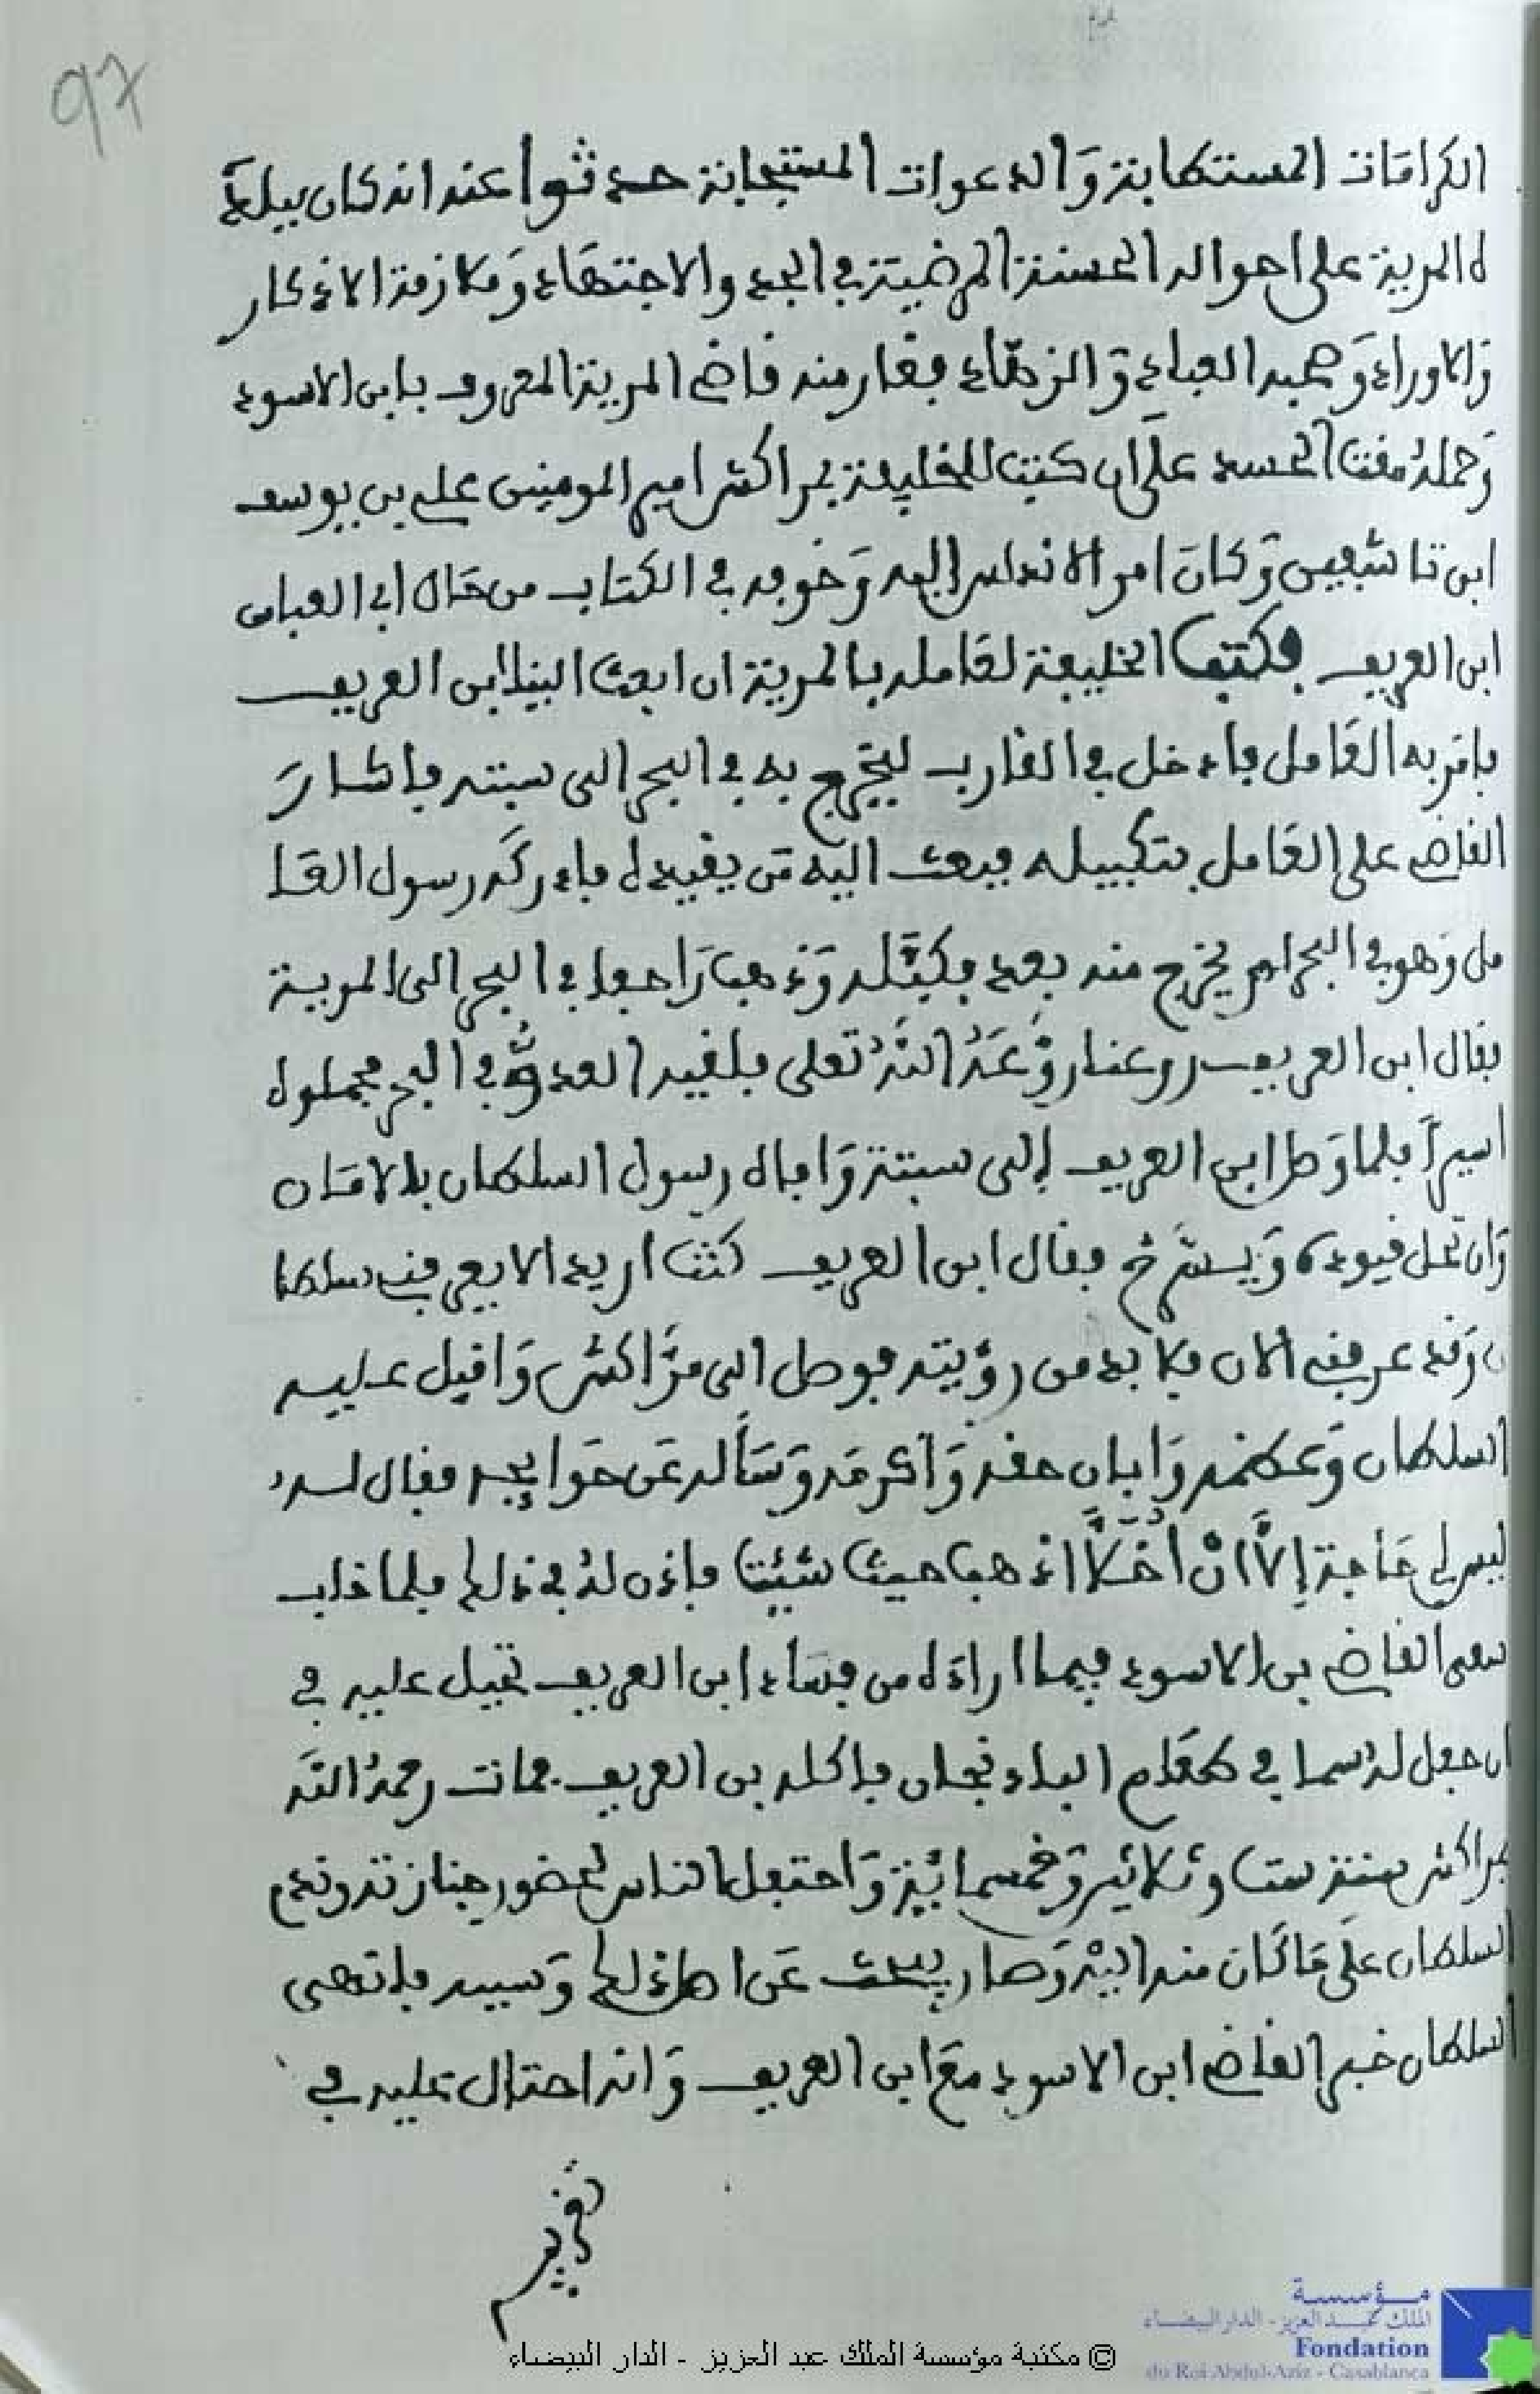 97
الكرامات المستطابة وَالدعوات المستجابة حدثوا عنه انه كان ببلد
ه المرية على احواله الحسنة المرضية في الجد والاجتهاد وَملازمة الاذكار
وَالاوراد وَصحبه العباد وَالزهاد فغار منه قاضي المرية المعروف بابن الاسود
وَحمله مقت الحسد على ان كتب للخليفة بمراكش امير المومنين علي بن يوسف
ابن تاشفين وَكان امر الاندلس اليه وَخوفه في الكتاب من حال ابي العباس
ابن العريف فكتب الخليفة لعامله بالمرية ان ابعث الينا ابن العريف
فامر به العامل فادخل في القارب ليخرج به في البحر الى سبتة فاشارَ
القاضي على العامل بتكبيله فبعث اليه من يقيده فادركه رسول العا
مل وَهو في البحر لم يخرج منه بعد فكبَّله وَذهب رَاجعا في البحر الى المرية
فقال ابن العريف روعنا روَّعَهُ اللَّهُ تعلى فلقيه العدوُّ في البحر فحملوه
اسيراً فلما وَصل ابن العريف إلى سبتة وَافاه رسول السلطان بالامان
وَان تحل قيوده وَيسرح فقال ابن العريف كنت اريد الا يعرفني سلطا
ن وَقد عرفني الان فلا بد من رؤيته فوصل الى مرَّاكش وَاقبل عليه
السلطان وَعظمه وَابان حقه وَاكرمه وَسَأله عَن حوَايجه فقال له
ليس لي حَاجة إلَّا انْ أُخَلَّا اذهب حيث شئت فاذن له في ذلك فلما خاب
سعي القاضي بن الاسود فيما اراده من فساد ابن العريف تحيل عليه في
ان جعل له سما في طعام الباذنجان فاكله بن العريف فمات رحمهُ اللَّه
بمراكش سنة ست وثلاثين وَخمسمائة وَاحتفل الناس لحضور جنازته وندم
السلطان على مَا كَان منه اليهْ وَصار يبحث عَن اصل ذلك وَسببه فانهى
السلطان خبر القاضي ابن الاسود مَع ابن العريف وَانه احتال عليه في
© مكتبة مؤسسة الملك عبد العزيز - الدار البيضاء
مؤسسة
الملك عبد العزيز - الدار البيضاء
Fondation
du Roi Abdul-Aziz - Casablanca